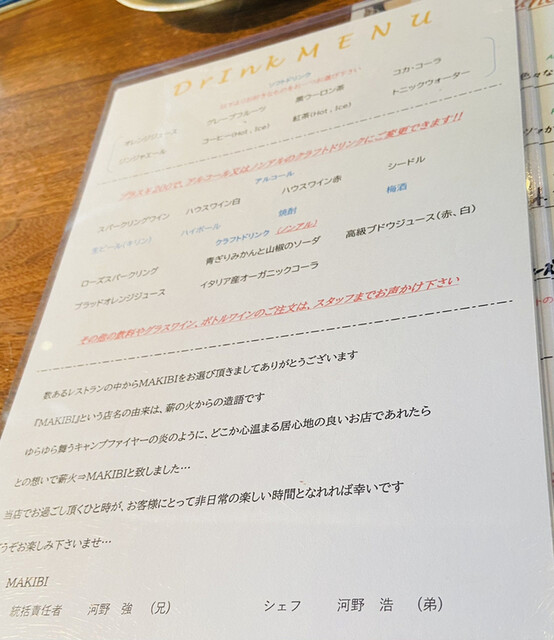 Drink MENU
ソフトドリンク
以下よりお好きなものをお一つお選び下さい
オレンジジュース グレープフルーツ 黒ウーロン茶 コカ・コーラ
ジンジャエール コーヒー(Hot, Ice) 紅茶(Hot, Ice) トニックウォーター
プラス¥200で、アルコール又はノンアルのクラフトドリンクにご変更できます!!
アルコール
スパークリングワイン ハウスワイン白 ハウスワイン赤 シードル
生ビール(キリン) ハイボール 焼酎 梅酒
クラフトドリンク (ノンアル)
ローズスパークリング 青ぎりみかんと山椒のソーダ 高級ブドウジュース(赤、白)
ブラッドオレンジジュース イタリア産オーガニックコーラ
その他の飲料やグラスワイン、ボトルワインのご注文は、スタッフまでお声かけ下さい
数あるレストランの中からMAKIBIをお選び頂きましてありがとうございます
『MAKIBI』という店名の由来は、薪の火からの造語です
ゆらゆら舞うキャンプファイヤーの炎のように、どこか心温まる居心地の良いお店であれたら
との想いで薪火⇒MAKIBIと致しました…
当店でお過ごし頂くひと時が、お客様にとって非日常の楽しい時間となれれば幸いです
うぞお楽しみ下さいませ…
MAKIBI
統括責任者 河野 強 (兄) シェフ 河野 浩 (弟)